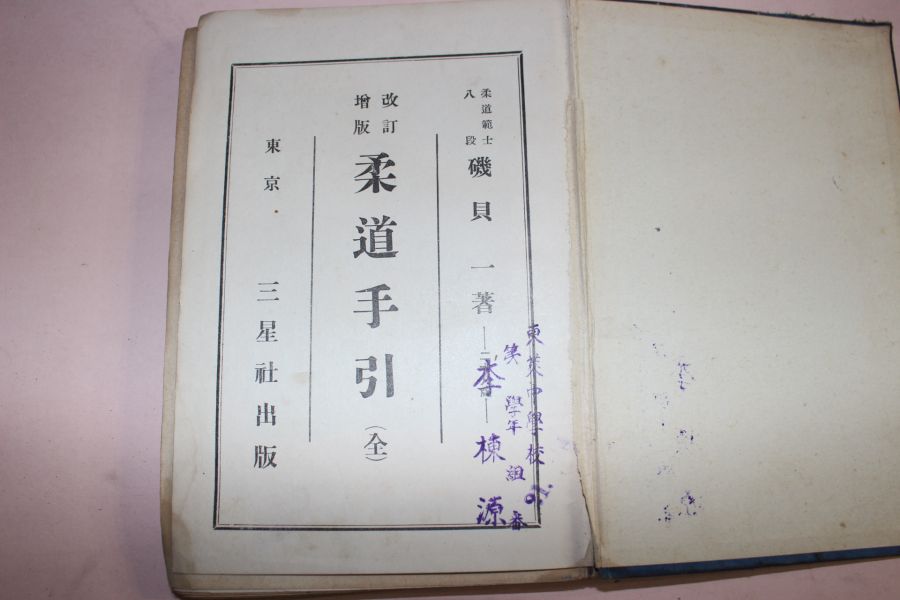 柔道範士
八段
磯貝一著
改訂
増版
柔道手引(全)
東京 三星社出版
東萊中學校
學年 組 番
李棟源